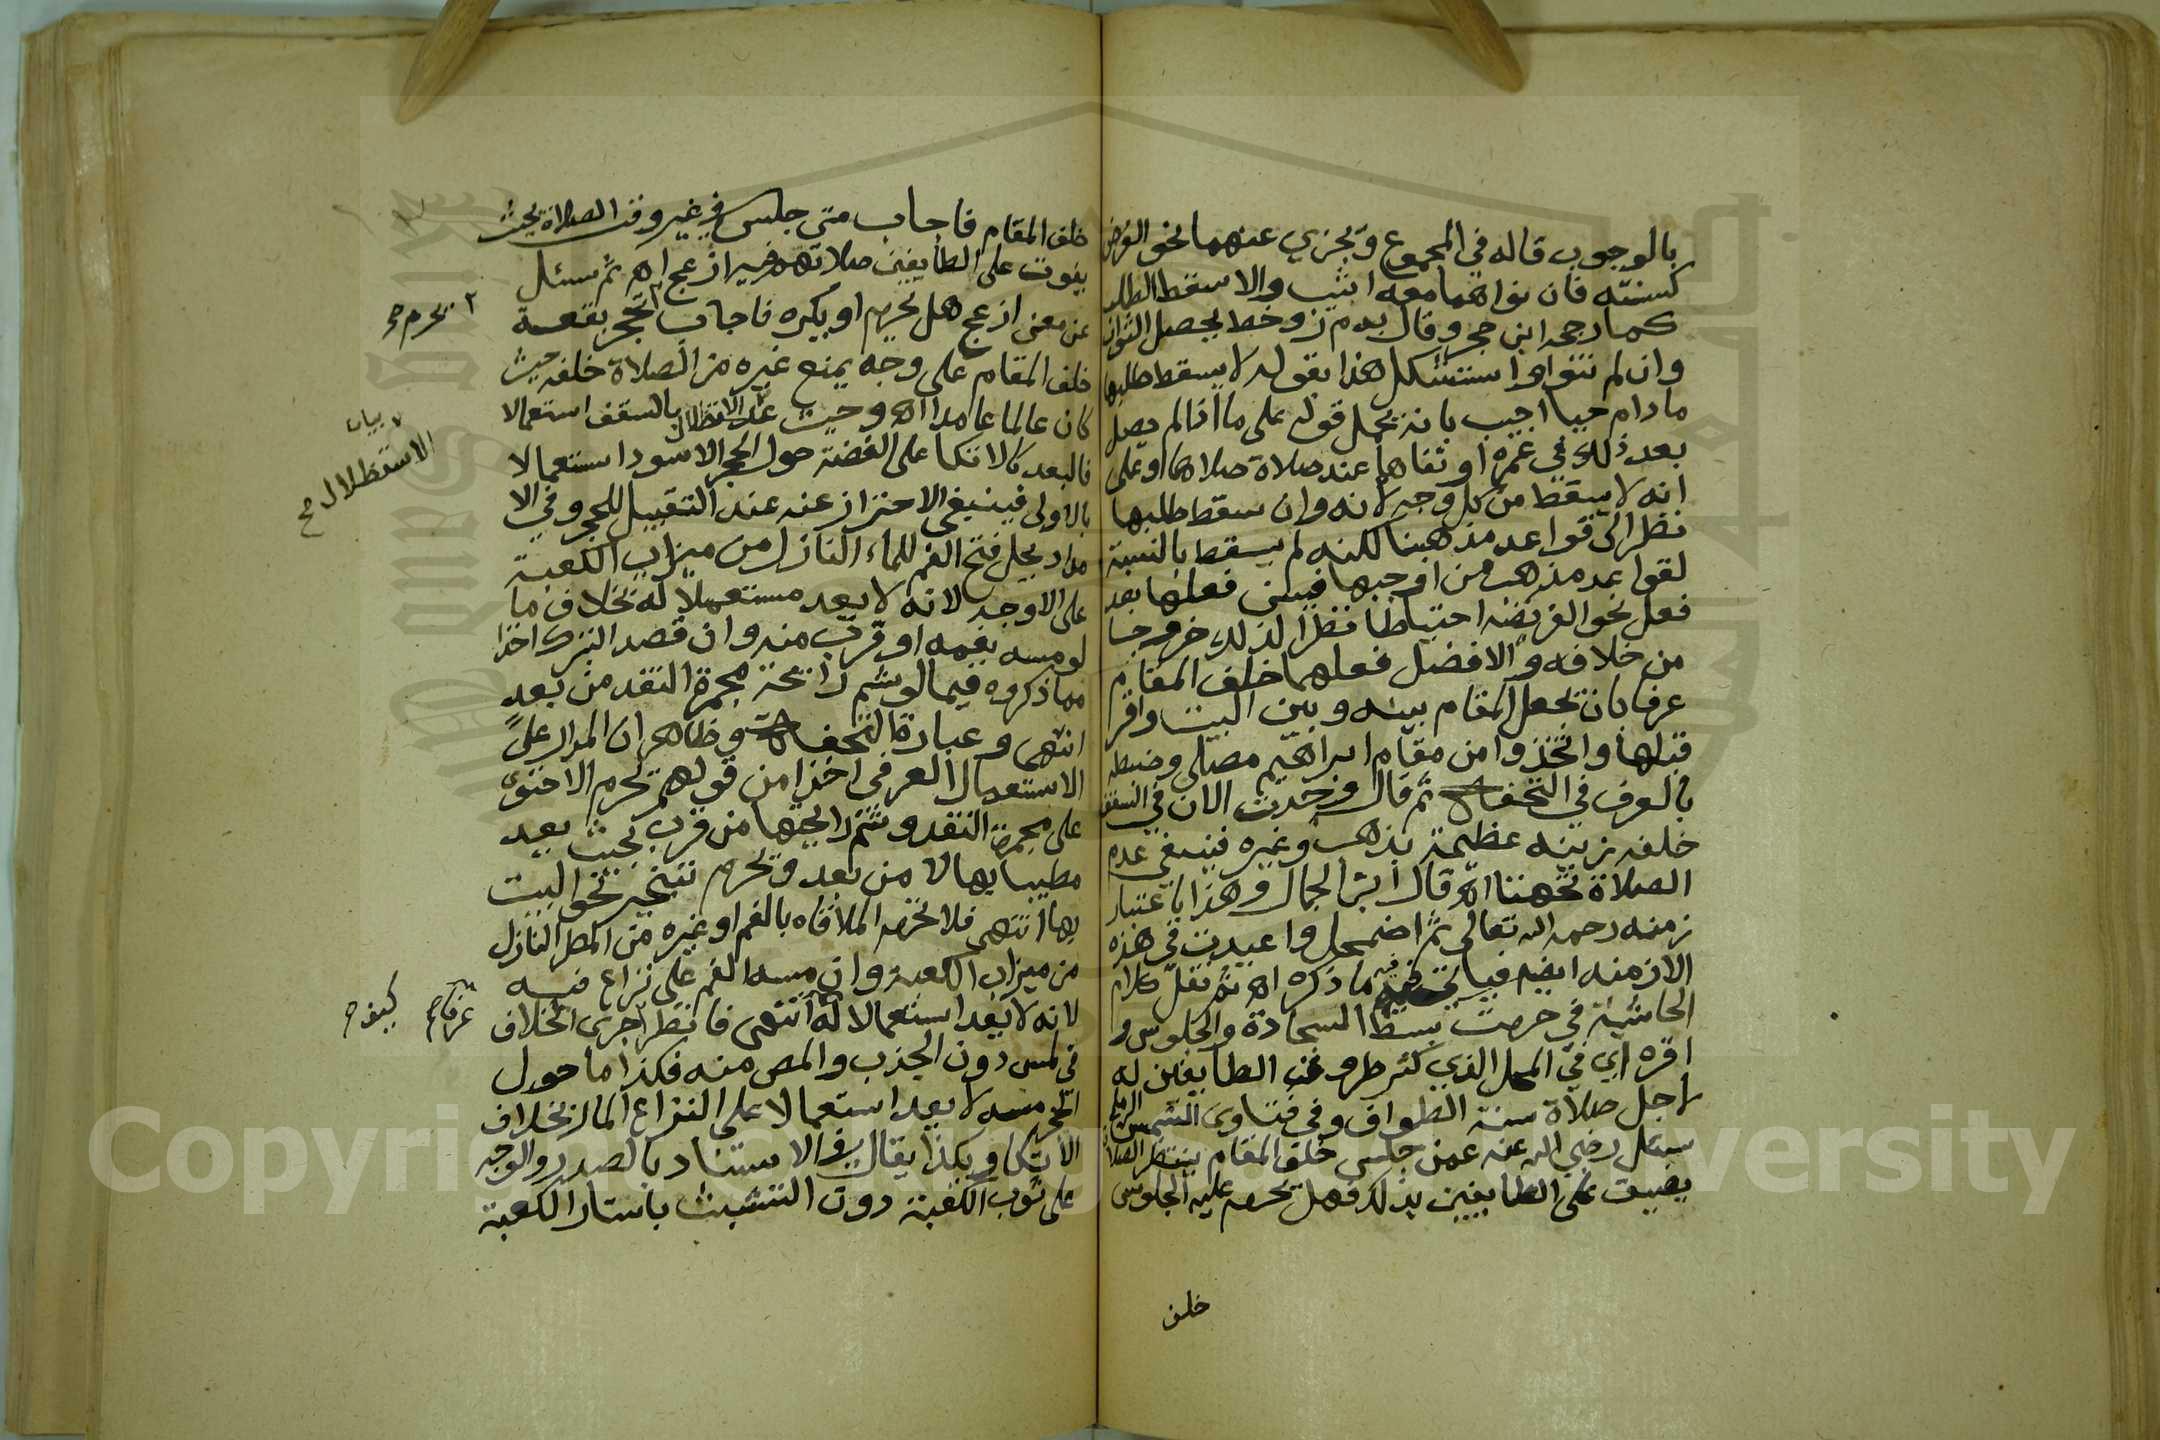 بالوجوب قاله في المجموع ويجزي عنهما نحو الفرض
كسنته فان نواهما معه اثيب والا سقط الطلب
كما رجحه ابن حجر وقال م ر وخط يحصل الثواب
وان لم تنوا واستشكل هذا بقولهم لا يسقط طلبها
مادام حيا اجيب بانه يحمل قولهم على ما اذا لم يصل
بعد ذلك في عمره او نفاهما عند صلاة صلاها او على
انه لا يسقط من كل وجه لأنه وان سقط طلبها
نظرا الى قواعد مذهبنا لكنه لم يسقط بالنسبة
لقواعد مذهب من اوجبها فيسن فعلها بعد
فعل نحو الفريضة احتياطا نظرا لذلك خروجا
من خلافه والافضل فعلهما خلف المقام
عرفا بان يجعل المقام بينه وبين البيت واقرا
قبلها واتخذوا من مقام ابراهيم مصلى وضبطه
بالعرف في التحفة ثم قال وحدث الان في السقف
خلفه زينه عظيمة بذهب وغيره فينبغي عدم
الصلاة تحتها اه قال ابن الجمال وهذا باعتبار
زمنه رحمه الله تعالى ثم اضمحل واعيدت في هذه
الازمنه ايضا فياتي فيه ما ذكره اه ثم نقل كلام
الحاشية في حرمت بسط السجادة والجلوس و
اقره اي في المحل الذي كثر طروق الطايفين له
لاجل صلاة سنة الطواف وفي فتاوى الشمس الرملي
سئل رضي الله عنه عمن جلس خلف المقام ينتظر الصلاة
يضيق على الطايفين بذلك فهل يحرم عليه الجلوس
خلف
خلف المقام فاجاب متى جلس في غير وقت الصلاة بحيث
يفوت على الطايفين صلاتهم فيه ازعج اه ثم سئل
عن معنى ازعج هل يحرم او يكره فاجاب تحجر بقعة
٢ يحرم صح
خلف المقام على وجه يمنع غيره من الصلاة خلفه حيث
كان عالما عامدا اه وحيث عد الاستظلال بالسقف استعمالا
بيان
الاستظلال صح
فالبعد كالاتكا على الفضة حول الحجر الاسود استعمالا
بالاولى فينبغي الاحتراز عنه عند التقبيل للحجر وفي الا
مداد يحل فتح الفم للماء النازل من ميزاب الكعبة
على الاوجه لانه لا يعد مستعملا له بخلاف ما
لو مسه بفمه او قرب منه وان قصد التبرك اخذا
مما ذكروه فيما لو شم رايحة مجمرة النقد من بعد
انتهى وعبارة التحفة وظاهر ان المدار على
الاستعمال العرفي اخذا من قولهم يحرم الاحتوى
على مجمرة النقد وشم رايحتها من قرب بحيث يعد
مطيبا بها لا من بعد ويحرم تبخير نحو البيت
بها انتهى فلا يحرم الملاقاه بالفم او غيره من المطر النازل
من ميزاب الكعبة وان مسه الفم على نزاع فيه
لانه لا يعد استعمالا له انتهى فانظر اجرى الخلاف
عرفا صح
في لمس دون الجذب والمص منه فكذا ما حول
الحجر مسه لا يعد استعمالا على النزاع المار بخلاف
الاتكا وكذا يقال في الاستناد بالصدر والوجه
على ثوب الكعبة دون التشبث باستار الكعبة
Copyright © King Saud University